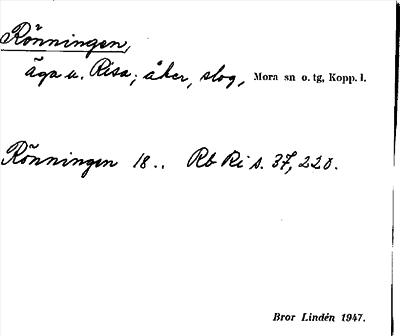 Rönningen,
äga u. Risa; åker, slog, Mora sn o. tg, Kopp. l.
Rönningen 18.. Rb Ri s. 37, 220.
Bror Lindén 1947.